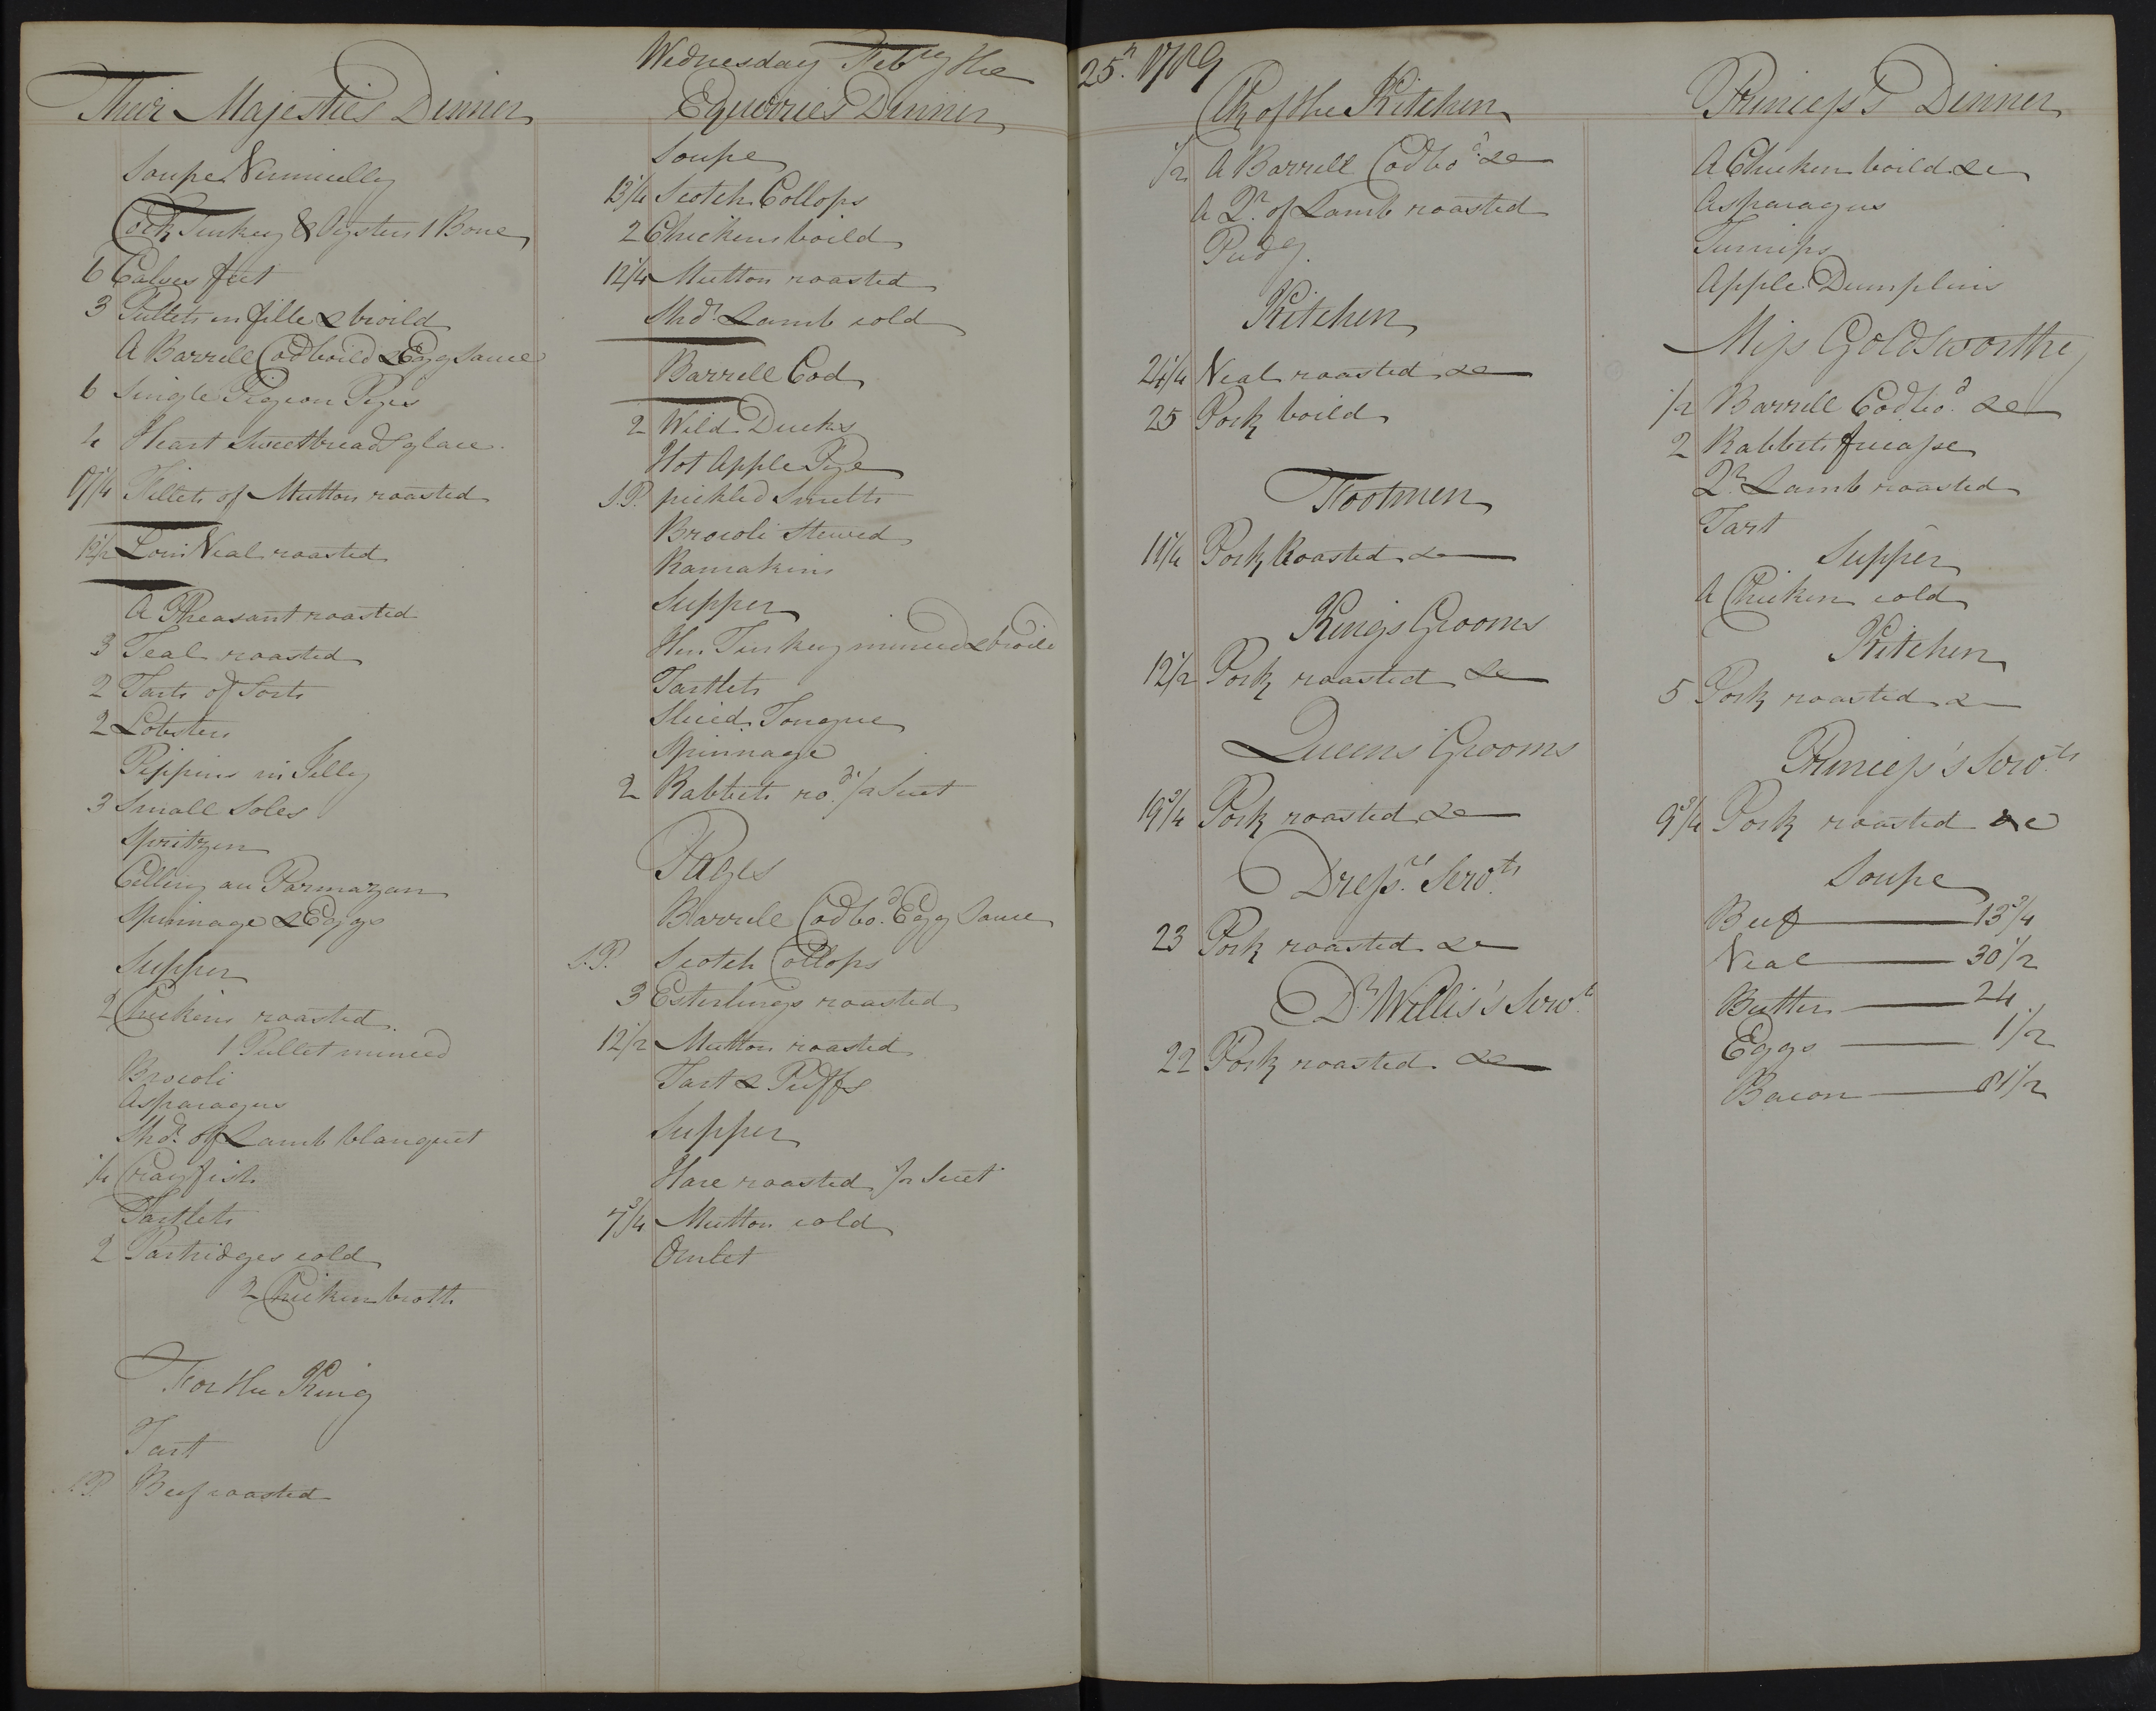 Wednesday Feb.ry the 25.th 1789
Their Majesties Dinner
Soupe Vermicelly
Cock Turkey & Oysters 1 Bone
6 Calves feet
3 Pullets en fille & broild
A Barrell Cod boild & Egg Sauce
6 Single Pigeon Pyes
4 Heart Sweetbreads glace
17 1/4 Fillets of Mutton roasted
12 1/2 Loin Veal roasted
A Pheasant roasted
3 Teal roasted
2 Tarts of Sorts
2 Lobsters
Pippins in Jelly
3 Small Soles
Spritzen
Cellery au Parmazan
Spinnage & Eggs
Supper
2 Chickens roasted
1 Pullet minced
Brocoli
Asparagus
Shd.r of Lamb blanquet
1/4 Crayfish
Tartlets
2 Partridges cold
2 Chicken broth
For the King
Tart
S.P. Beef roasted
Equerries Dinner
Soupe
13 1/4 Scotch Collops
2 Chickens boild
12 1/4 Mutton roasted
Shd.r Lamb cold
Barrell Cod
2 Wild Ducks
Hot Apple Pye
S.P. pickled Smelts
Brocoli Stewed
Ramakins
Supper
Hen Turkey minced & broild
Tartlets
Sliced Tongue
Spinnage
2 Rabbits ro.d 1/2 Suet
Pages
Barrell Cod bo.d Egg Sauce
S.P. Scotch Collops
3 Esterlings roasted
12 1/2 Mutton roasted
Tart & Puffs
Supper
Hare roasted 1/2 Suet
7 3/4 Mutton cold
Omlet
Clk of the Kitchen
1/2 A Barrell Cod bo.d &c
A Q.r of Lamb roasted
Pud.g
Kitchen
24 1/4 Veal roasted &c
25 Pork boild
Footmen
11 1/4 Pork Roasted &c
Kings Grooms
12 1/2 Pork roasted &c
Queens Grooms
19 3/4 Pork roasted &c
Dress.rs Serv.ts
23 Pork roasted &c
D.r Willis's Serv.ts
22 Pork roasted &c
Princess's Dinner
A Chicken boild &c
Asparagus
Turnips
Apple Dumplins
Miss Goldsworthy
1/2 Barrell Cod bo.d &c
2 Rabbits fricasse
Q.r Lamb roasted
Tart
Supper
A Chicken cold
Kitchen
5 Pork roasted &c
Princess's Serv.ts
9 3/4 Pork roasted &c
Soupe
Beef 13 3/4
Veal 30 1/2
Butter 24
Eggs 1 1/2
Bacon 81 1/2